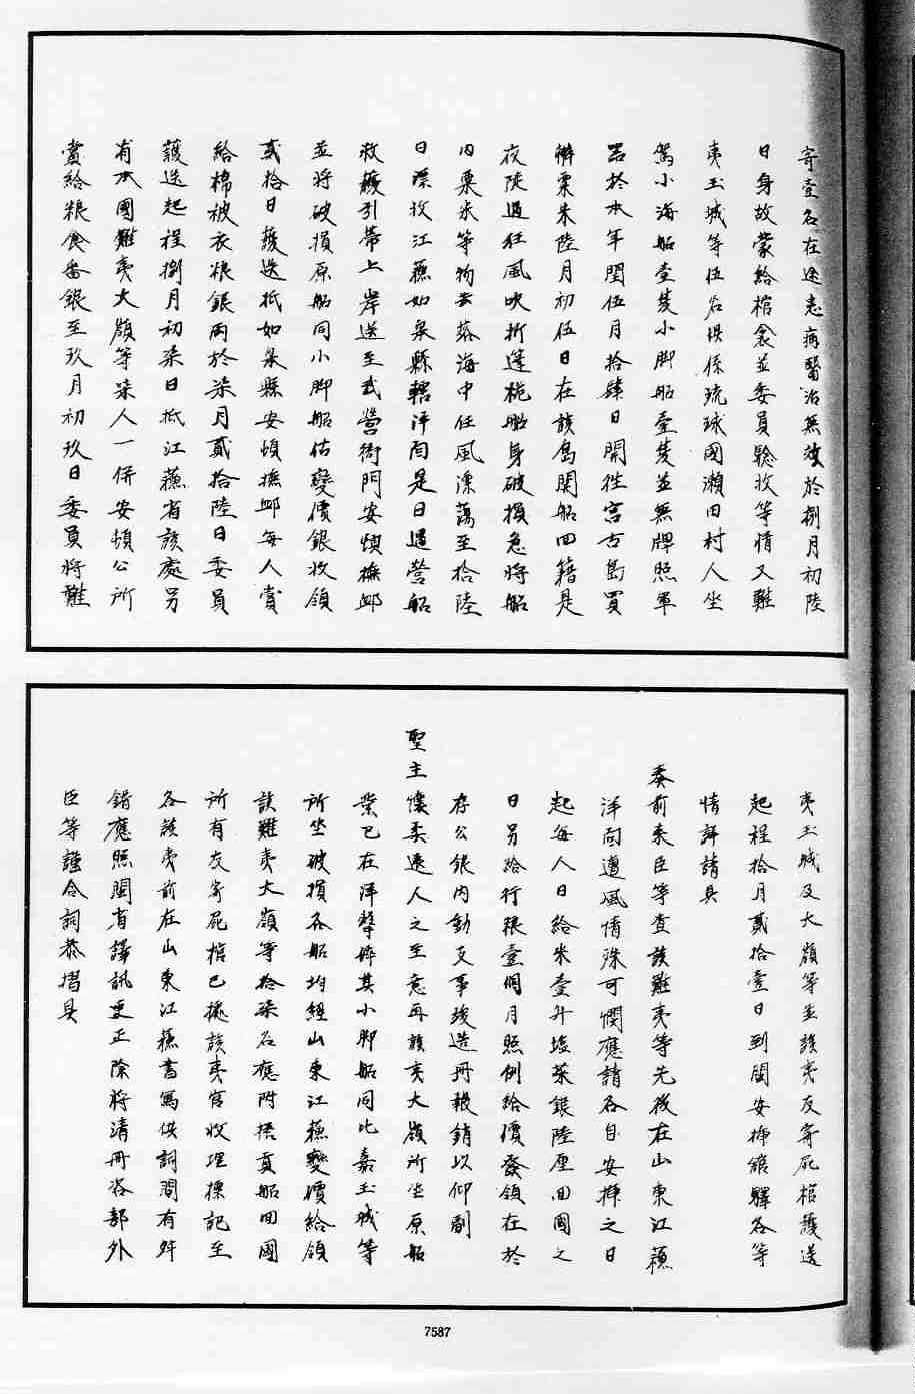 寄壹名在途患病醫治無效於捌月初陸
日身故蒙給棺衾並委員驗收等情又難
夷玉城等伍名俱係琉球國瀨田村人坐
駕小海船壹隻小脚船壹隻並無牌照軍
器於本年閏伍月拾肆日開往宮古島買
辦粟米陸月初伍日在該島開船回籍是
夜陡遇狂風吹折篷桅船身破損急將船
內粟米等物丟落海中任風漂蕩至拾陸
日漂收江蘇如皋縣轄洋面是日遇營船
救護引帶上岸送至武營衙門安頓撫卹
並將破損原船同小脚船估變價銀收領
貳拾日護送抵如皋縣安頓撫卹每人賞
給棉被衣粮銀兩於柒月貳拾陸日委員
護送起程捌月初柒日抵江蘇省該處另
有本國難夷大嶺等柒人一併安頓公所
賞給粮食番銀至玖月初玖日委員將難
夷玉城及大嶺等並該夷友寄屍棺護送
起程拾月貳拾壹日到閩安揷館驛各等
情詳請具
奏前來臣等查該難夷等先後在山東江蘇
洋面遭風情殊可憫應請各自安揷之日
起每人日給米壹升塩菜銀陸厘回國之
日另給行粮壹個月照例給價發領在於
存公銀內動支事竣造冊報銷以仰副
聖主懷柔遠人之至意再該夷大嶺所坐原船
業已在洋擊碎其小脚船同比嘉玉城等
所坐破損各船均經山東江蘇變價給領
該難夷大嶺等拾柒名應附搭貢船回國
所有友寄屍棺已據該夷官收埋標記至
各該夷前在山東江蘇書寫供詞間有舛
錯應照閩省譯訊更正除將清冊咨部外
臣等謹合詞恭摺具
7587